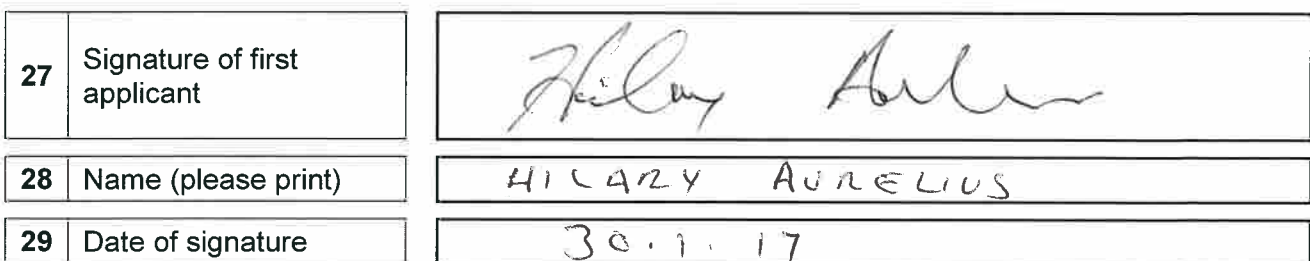 27 Signature of first applicant Hilary Aurelius
28 Name (please print) HILARY AURELIUS
29 Date of signature 30.1.17